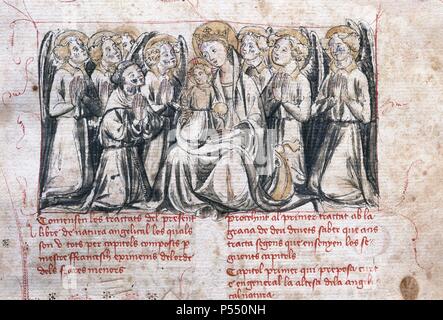 Comensen les tractats del present
libre de natura angelical los quals
son v. tots per capitols composts p
mestre francesch eximenis del orde
dels frares menors
Prochint al primer tractat ab la
gracia de deu devets saber que ans
tracta segons que ensenyen los se
guents capitols
Capitol primer qui preposa curt
e en general la altesa dela angli
cal natura
alamy
P550NH